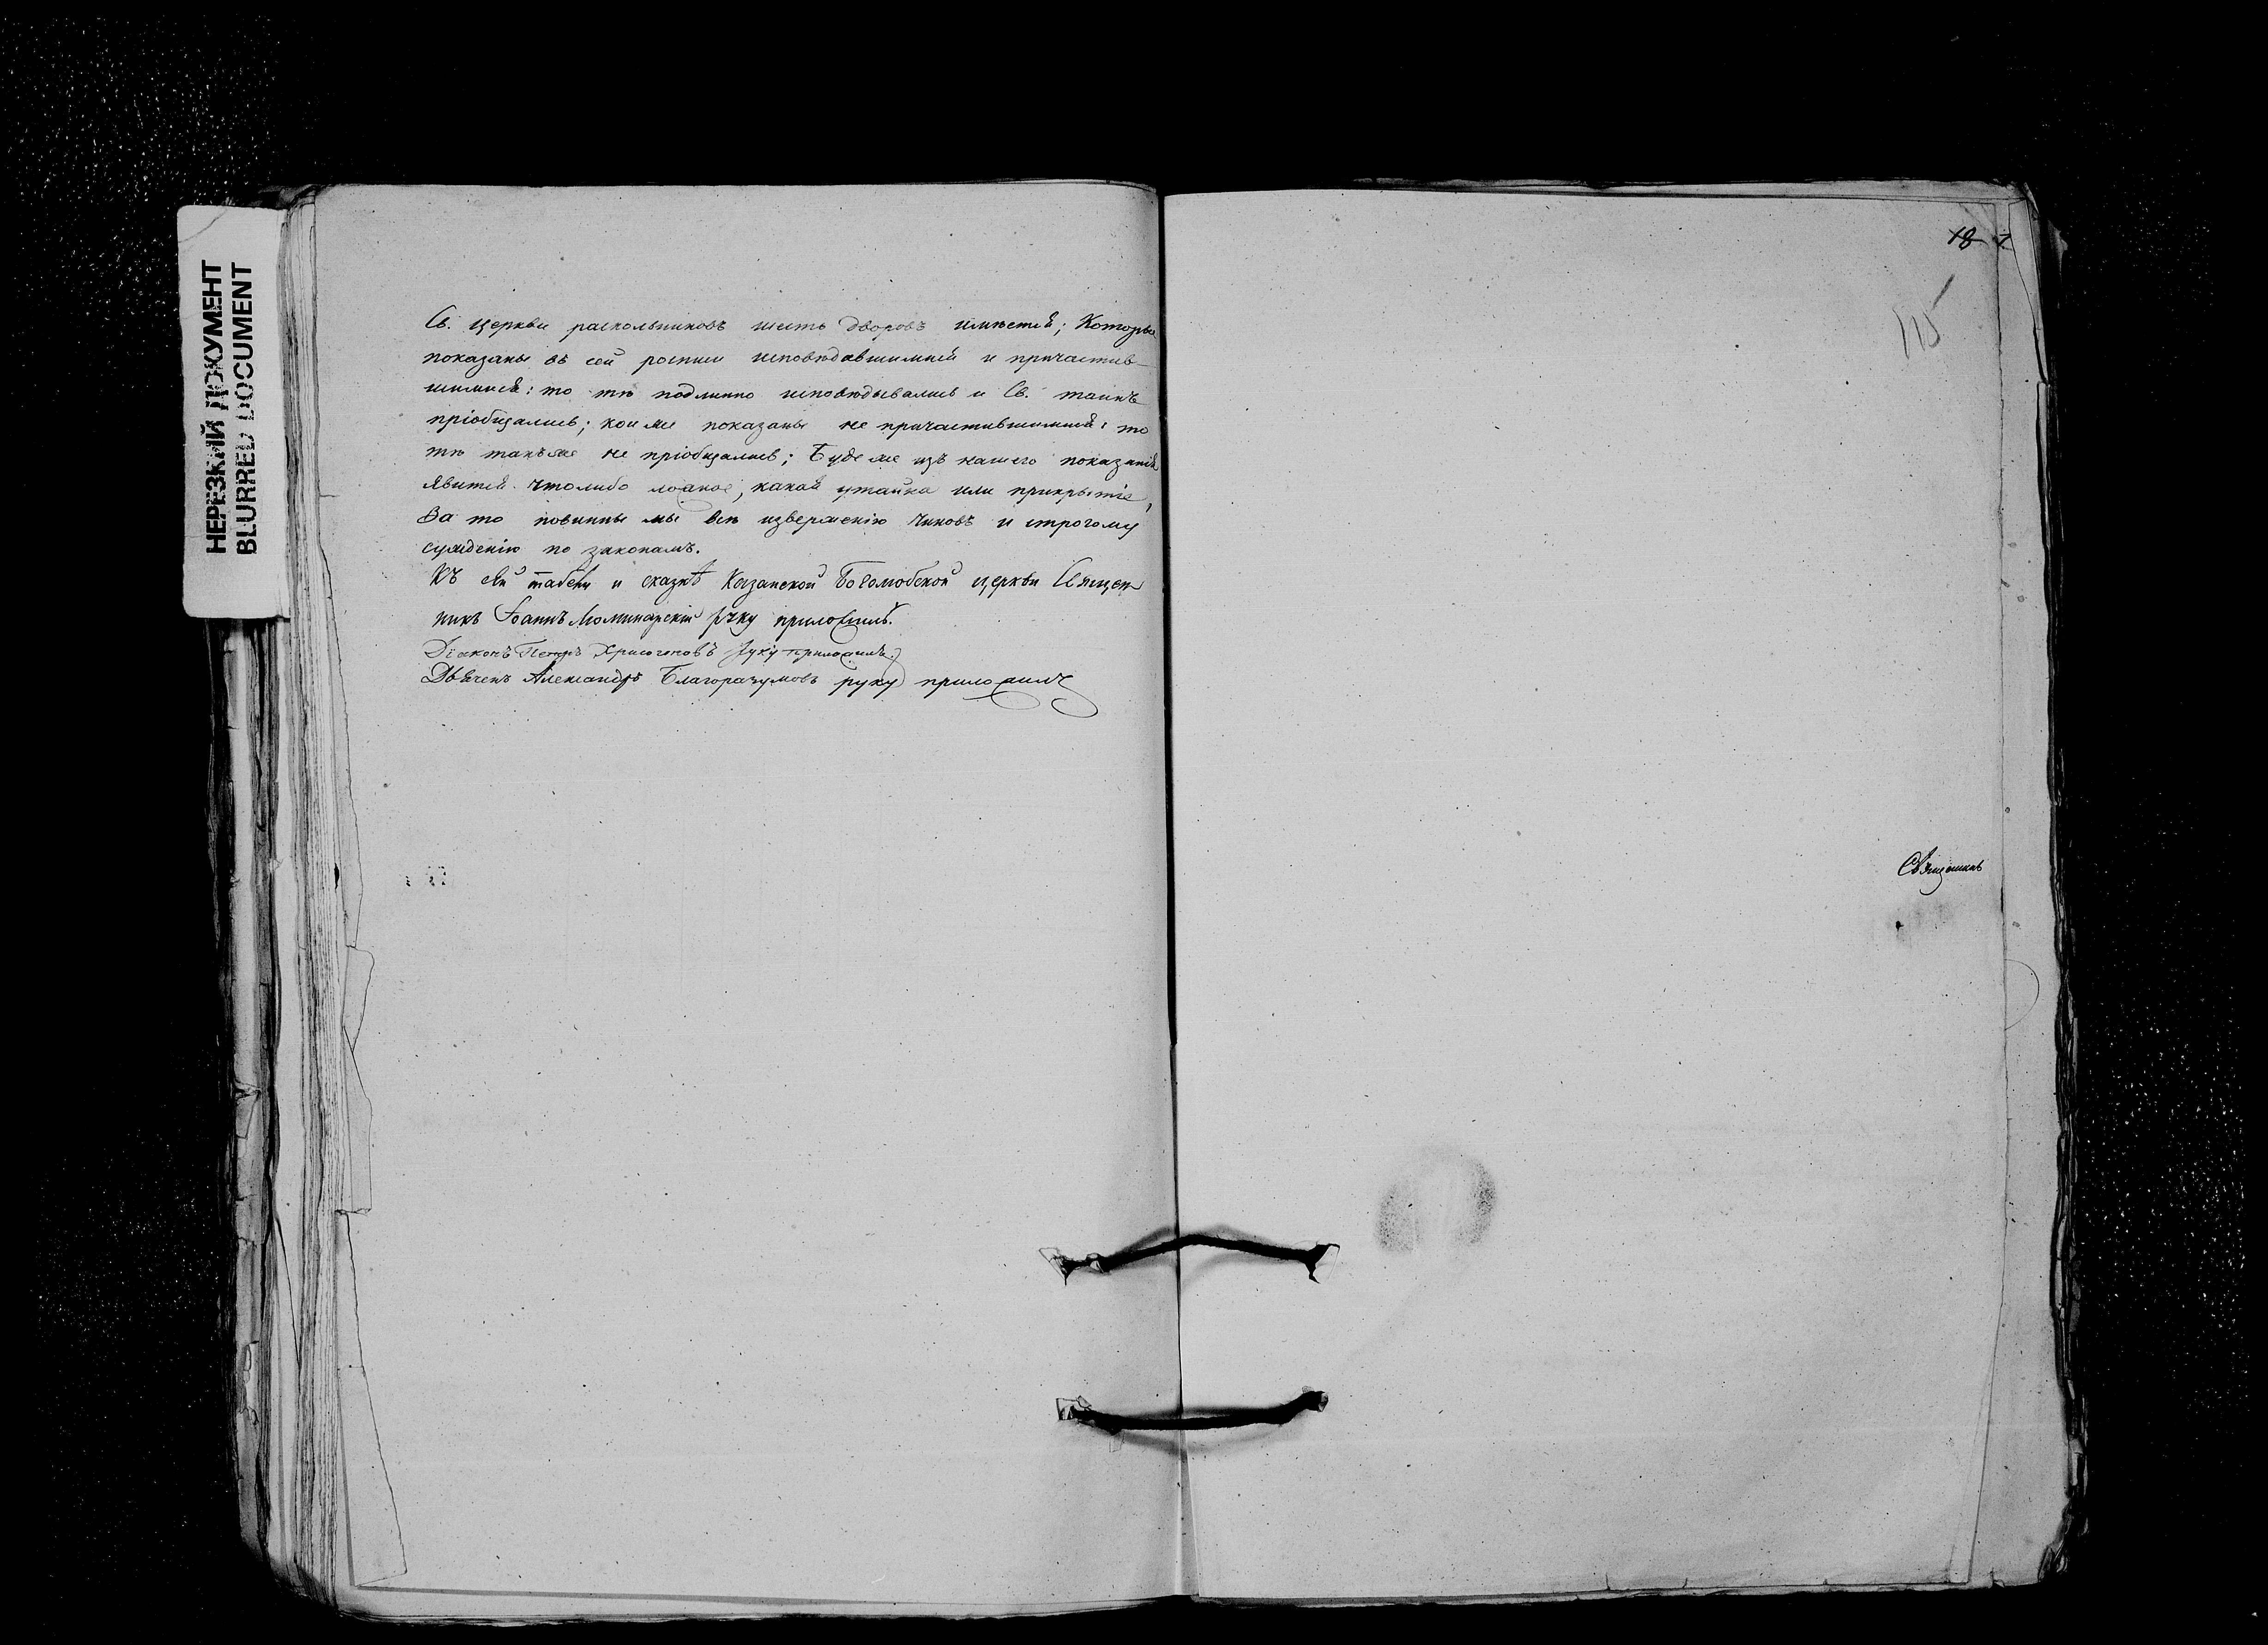 НЕРЕЗКИЙ ДОКУМЕНТ
BLURRED DOCUMENT
Св. церкви раскольниковъ шесть дворовъ имѣется; Которые
показаны въ сей росписи исповѣдавшимися и причастив-
шимися: то тѣ подлинно исповѣдывались и Св. таинъ
пріобщались; кои же показаны не причастившимися: то
тѣ такъ же не пріобщались; Буде же изъ нашего показанія
явится что либо ложное, какая утайка или прикрытіе,
За то повинны мы всѣ изверженію чиновъ и строгому
сужденію по законамъ.
Къ сей табели и сказкѣ Казанской Боголюбской церкви Священ
никъ Іоаннъ руку приложилъ.
Діаконъ Петръ Хрисогоновъ руку приложилъ.
Дьячекъ Александръ Благоразумовъ руку приложилъ
18
115
Священникъ